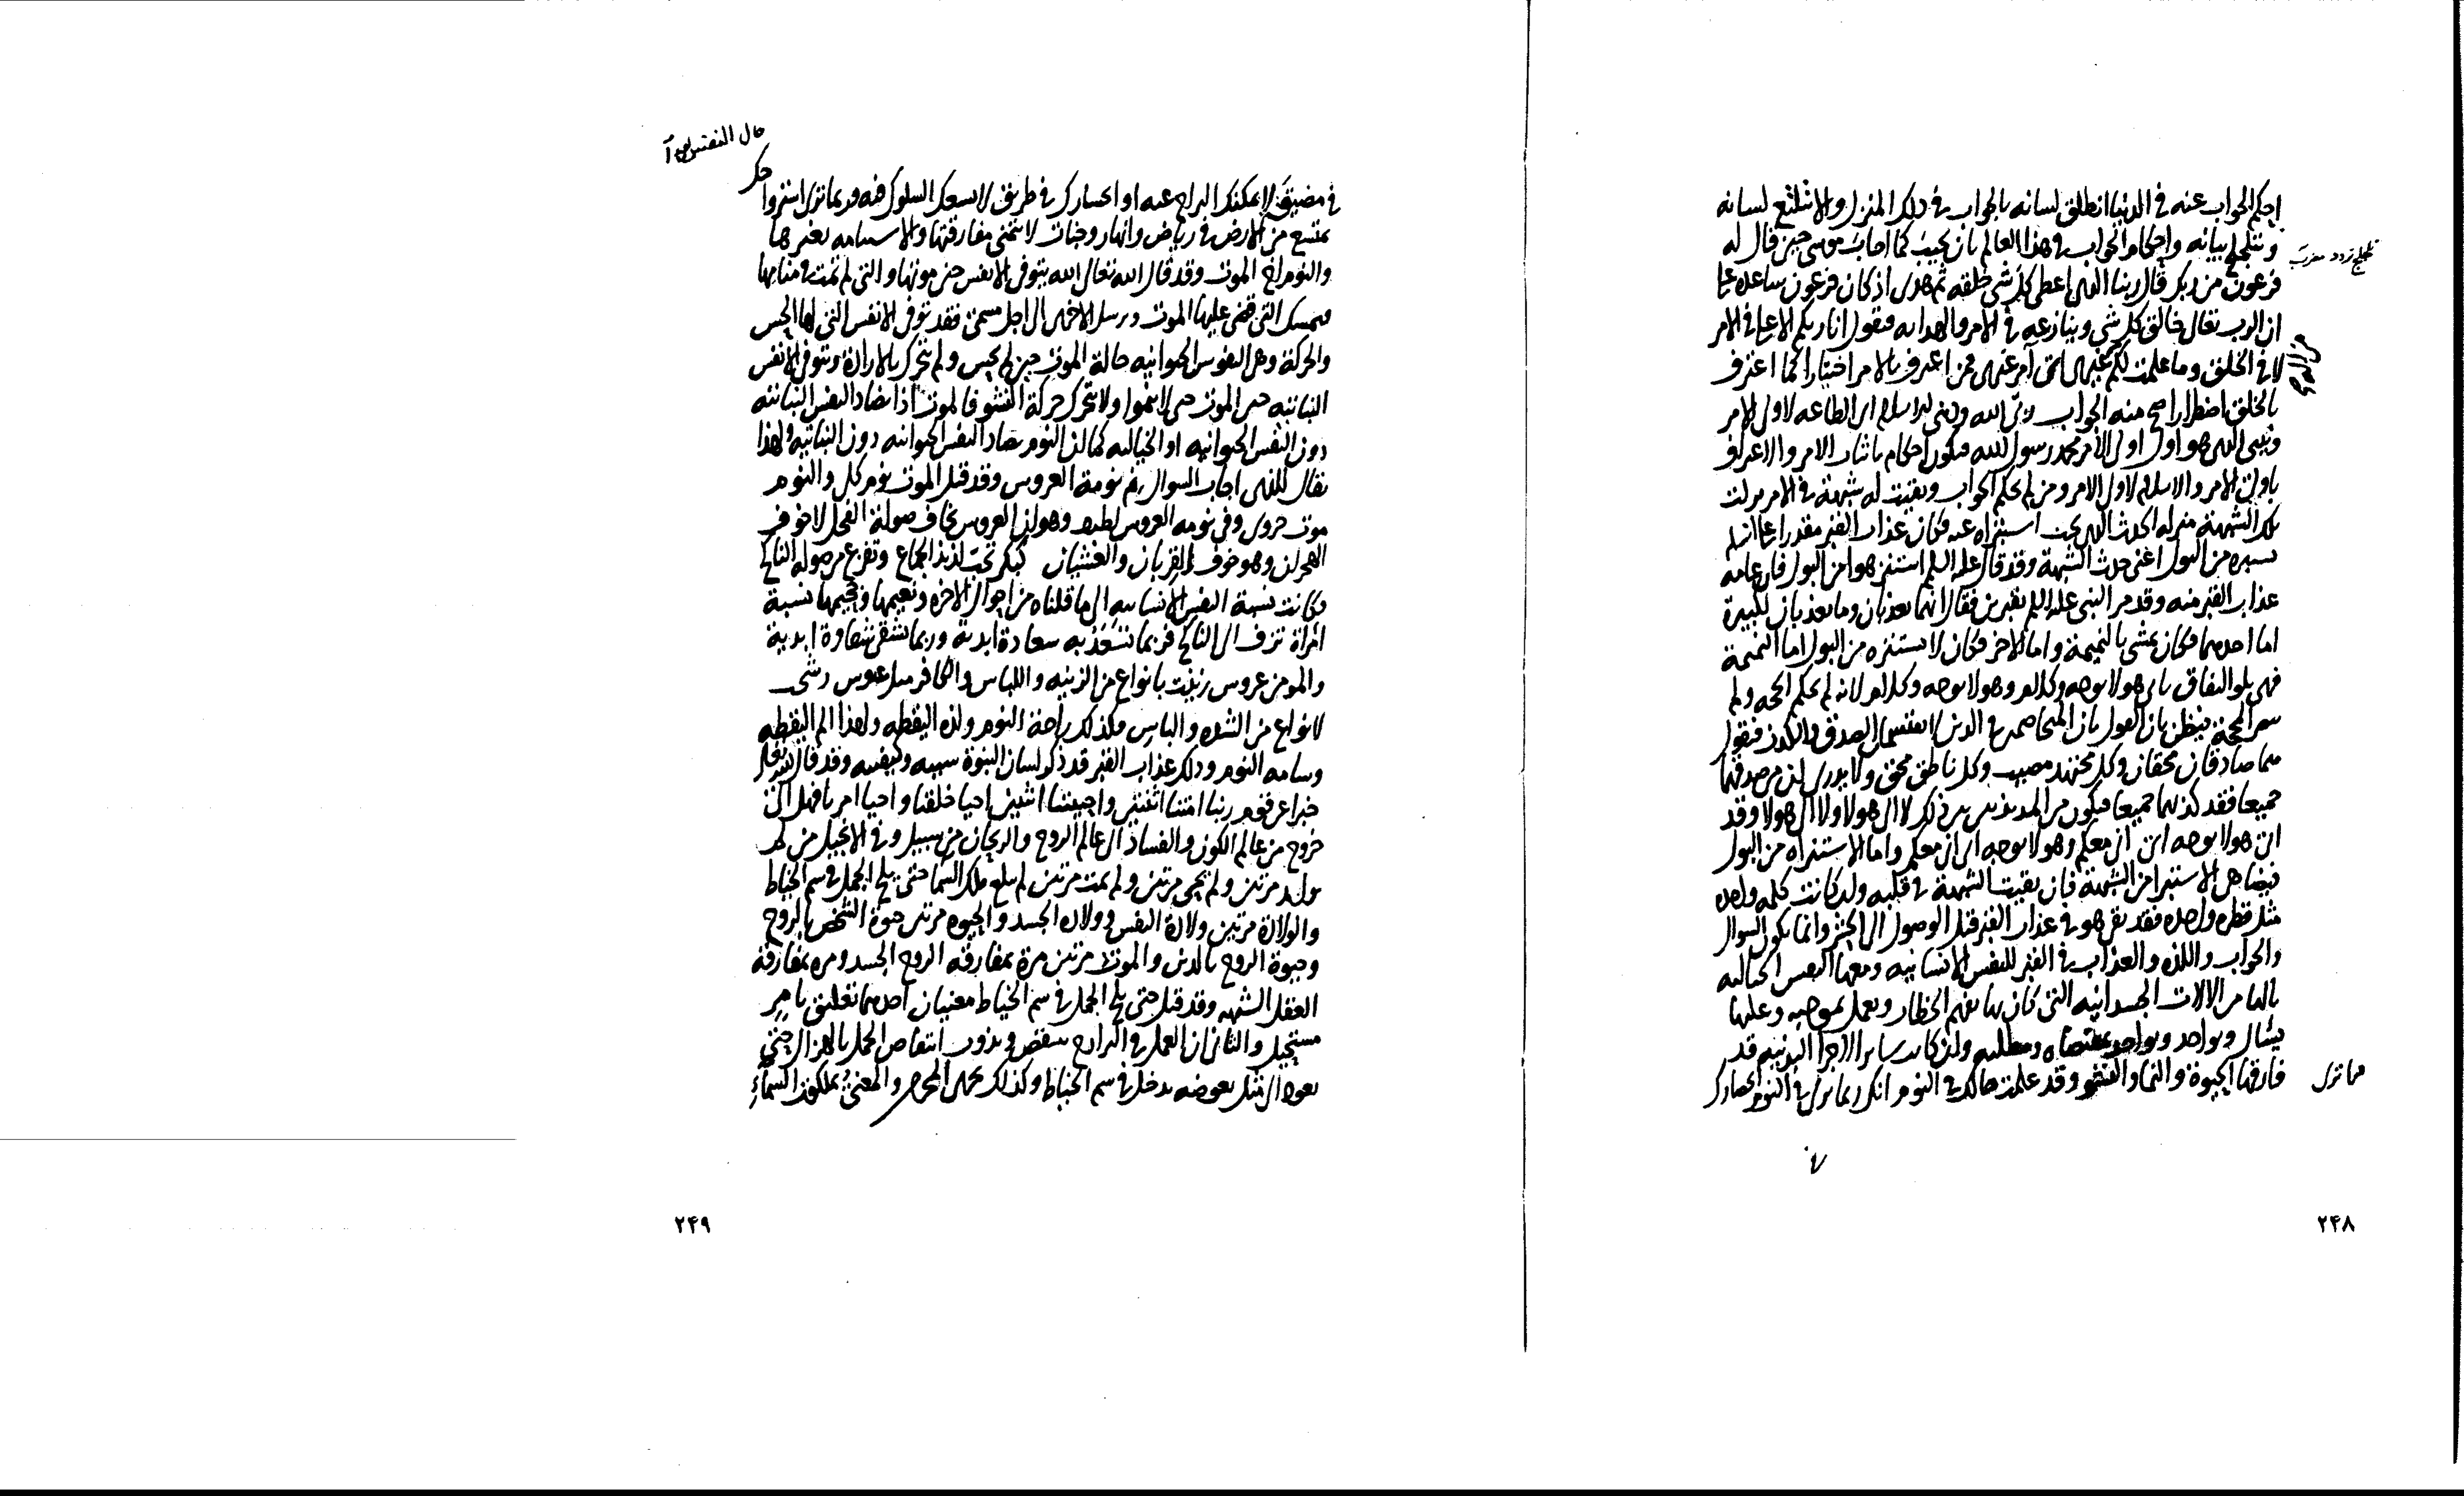 احكم الجواب عنه في الدنيا انطلق لسانه بالجواب في ذلك المنزل والا تلثغ لسانه
وتلجلج بيانه واحكام الجواب في هذا العالم بان يجيب كما اجاب موسى حين قال له
فرعون من ربك قال ربنا الذي اعطى كل شي خلقه ثم هدى اذ كان فرعون ساعده على
ان الرب تعالى خالق كل شي وينازعه في الامر والهدايه فيقول انا ربكم الاعلى في الامر
لا في الخلق وما علمت لكم غيري اي آمر غيري فمن اعترف بالامر اختيارا كما اعترف
بالخلق اضطرارا صح منه الجواب ربي الله وديني الاسلام اي الطاعه لاولي الامر
ونبيي الذي هو اول اولي الامر محمد رسول الله فيكون احكام باثبات الامر والاعتراف
باولي الامر والاسلام لاولي الامر ومن لم يحكم الجواب وبقيت له شبهة في الامر نزلت
تلك الشبهة منزله الحدث الذي يجب استبراه عنه فكان عذاب القبر مقدرا على
من البول اعني حدث الشبهة وقد قال عليه السلم استنزهوا من البول فان عامه
عذاب القبر منه وقد مر النبي عليه السلم بقبرين فقال انهما يعذبان وما يعذبان بكبيرة
اما احدهما فكان يمشي بالنميمة واما الاخر فكان لا يستنزه من البول اما النميمة
فهي النفاق ياتي هولا بوجه وكلام وهولا بوجه وكلام لانه لم يحكم الحجه ولم
الحجة فيظن بان القول بان المتخاصمين في الدين اقتسما الصدق والكذب فيقول
هما صادقان محقان وكل مجتهد مصيب وكل ناطق محق ولا يدري ان من صدقهما
جميعا فقد كذبهما جميعا فيكون من المذبذبين بين ذلك لا الى هولا ولا الى هولا وقد
اتى هولا بوجه اني معكم وهولا بوجه اني معكم واما الاستبراه من البول
فيضاهي الاستبرا من الشبهة فان بقيت الشبهة في قلبه ولو كانت كلمه واحده
مثل قطره واحده فقد بقي هو في عذاب القبر قبل الوصول الى الحشر وانما يكون السوال
والجواب واللذه والعذاب في القبر للنفس الانسانيه ومعها النفس الخياليه
من الالات الجسدانيه التي كان بها يفهم الخطاب ويعمل بموجبه وعليها
يسال ويواخذ بمقتضاه وان كانت ساير الاجزا البدنيه قد
فارقها الحيوة والنما والنشو وقد علمت حالك في النوم انك ربما نزل في النوم
مما نزل
٢٤٨
حال النفس
في مضيق لا يمكنك البراح عنه او في طريق لا يسعك السلوك فيه وربما نزل
بمتسع من الارض في رياض وانهار وجنات لا تتمنى مفارقتها بغيرها
والنوم اخ الموت وقد قال الله تعالى الله يتوفى الانفس حين موتها والتي لم تمت في منامها
فيمسك التي قضى عليها الموت ويرسل الاخرى الى اجل مسمى فقد توفى الانفس التي لها الحس
والحركة وهي النفوس الحيوانيه حالة الموت حين لم يحس ولم تتحرك بالارادة وتتوفى الانفس
النباتيه حين الموت حتى لا تنموا ولا تتحرك حركة النشو فالموت اذا يضاد النفس النباتيه
دون النفس الحيوانيه او الخياليه كما ان النوم يضاد النفس الحيوانيه دون النباتيه ولهذا
يقال للذي اجاب السوال نم نومة العروس وقد قيل الموت نوم كلي والنوم
موت جزوي وفي نومه العروس لطيفه وهو ان العروس تخاف صولة الفحل لا خوف
الهجران وهو خوف القربان والغشيان كبكر تحب لذيذ الجماع وتفزع من صوله الناكح
فكانت نسبة النفس الانسانيه الى ما قلناه من احوال الاخره ونعيمها وجحيمها نسبة
امراة تزف الى الناكح فربما تسعد به سعادة ابدية وربما تشقى شقاوة ابدية
والمومن عروس زينت بانواع من الزينه واللباس والكافر مثل عروس
لانواع من الشده والباس فكذلك راحة النوم ولذه اليقظه ولهذا الم اليقظه
وسامه النوم وذلك عذاب القبر قد ذكر لسان النبوة سببه وكيفيته وقد قال الله تعالى
خبرا عن قوم ربنا امتنا اثنتين واحييتنا اثنتين احيا خلقنا واحيا امرنا فهل الى
خروج من عالم الكون والفساد الى عالم الروح والريحان من سبيل وفي الانجيل من لم
يولد مرتين ولم يحيى مرتين ولم يمت مرتين لم يبلغ ملك السما حتى يلج الجمل في سم الخياط
والولادة مرتين ولادة النفس وولاده الجسد والحيوه مرتين حيوة الشخص بالروح
وحيوة الروح بالدين والموت مرتين مرة بمفارقه الروح الجسد ومره بمفارقة
العقل الشبهه وقد قيل حتى يلج الجمل في سم الخياط معنيان احدهما تعليق بامر
مستحيل والثاني ان العمل في البرازخ ينقص ويذوب انتقاص الجمل بالهزال حتى
يعود الى مثل بعوضه يدخل في سم الخياط وكذلك نجزي المجرمين والمعنى بملكوت السماء
٢٤٩